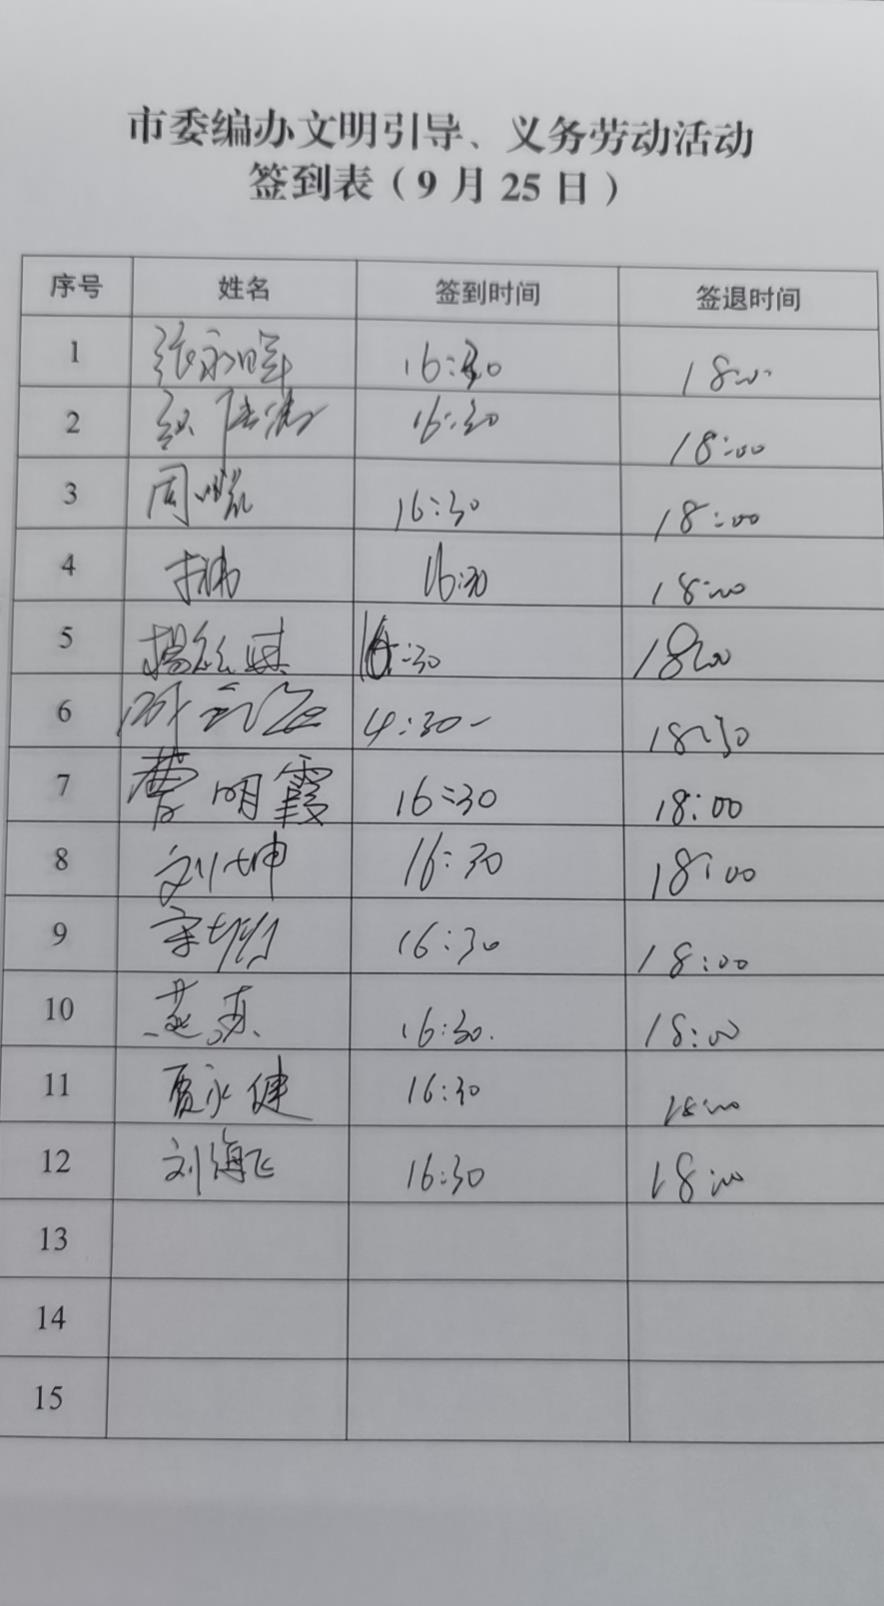 市委编办文明引导、义务劳动活动
签到表（9月25日）
序号 姓名 签到时间 签退时间
1 张永晖 16:30 18:00
2 16:30 18:00
3 周 16:30 18:00
4 16:30 18:00
5 杨 16:30 1800
6 4:30 18:30
7 曹明霞 16:30 18:00
8 刘坤 16:30 18:00
9 16:30 18:00
10 燕燕 16:30. 18:00
11 贾永健 16:30 18:00
12 刘海飞 16:30 18:00
13
14
15